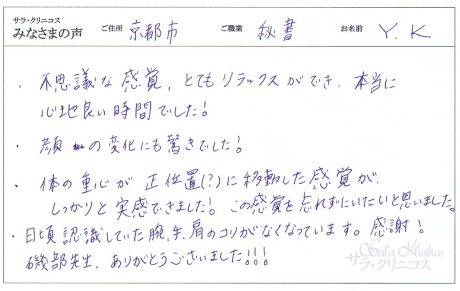 サラ・クリニコス
みなさまの声 ご住所 京都市 ご職業 秘書 お名前 Y.K
・不思議な感覚、とてもリラックスができ、本当に
心地良い時間でした!
・顔の変化にも驚きでした!
・体の重心が正位置(?)に移動した感覚が
しっかりと実感できました! この感覚を忘れずにいたいと思いました。
・日頃認識していた腕、首、肩のコリがなくなっています。感謝!
磯部先生、ありがとうございました!!!
サラ・クリニコス